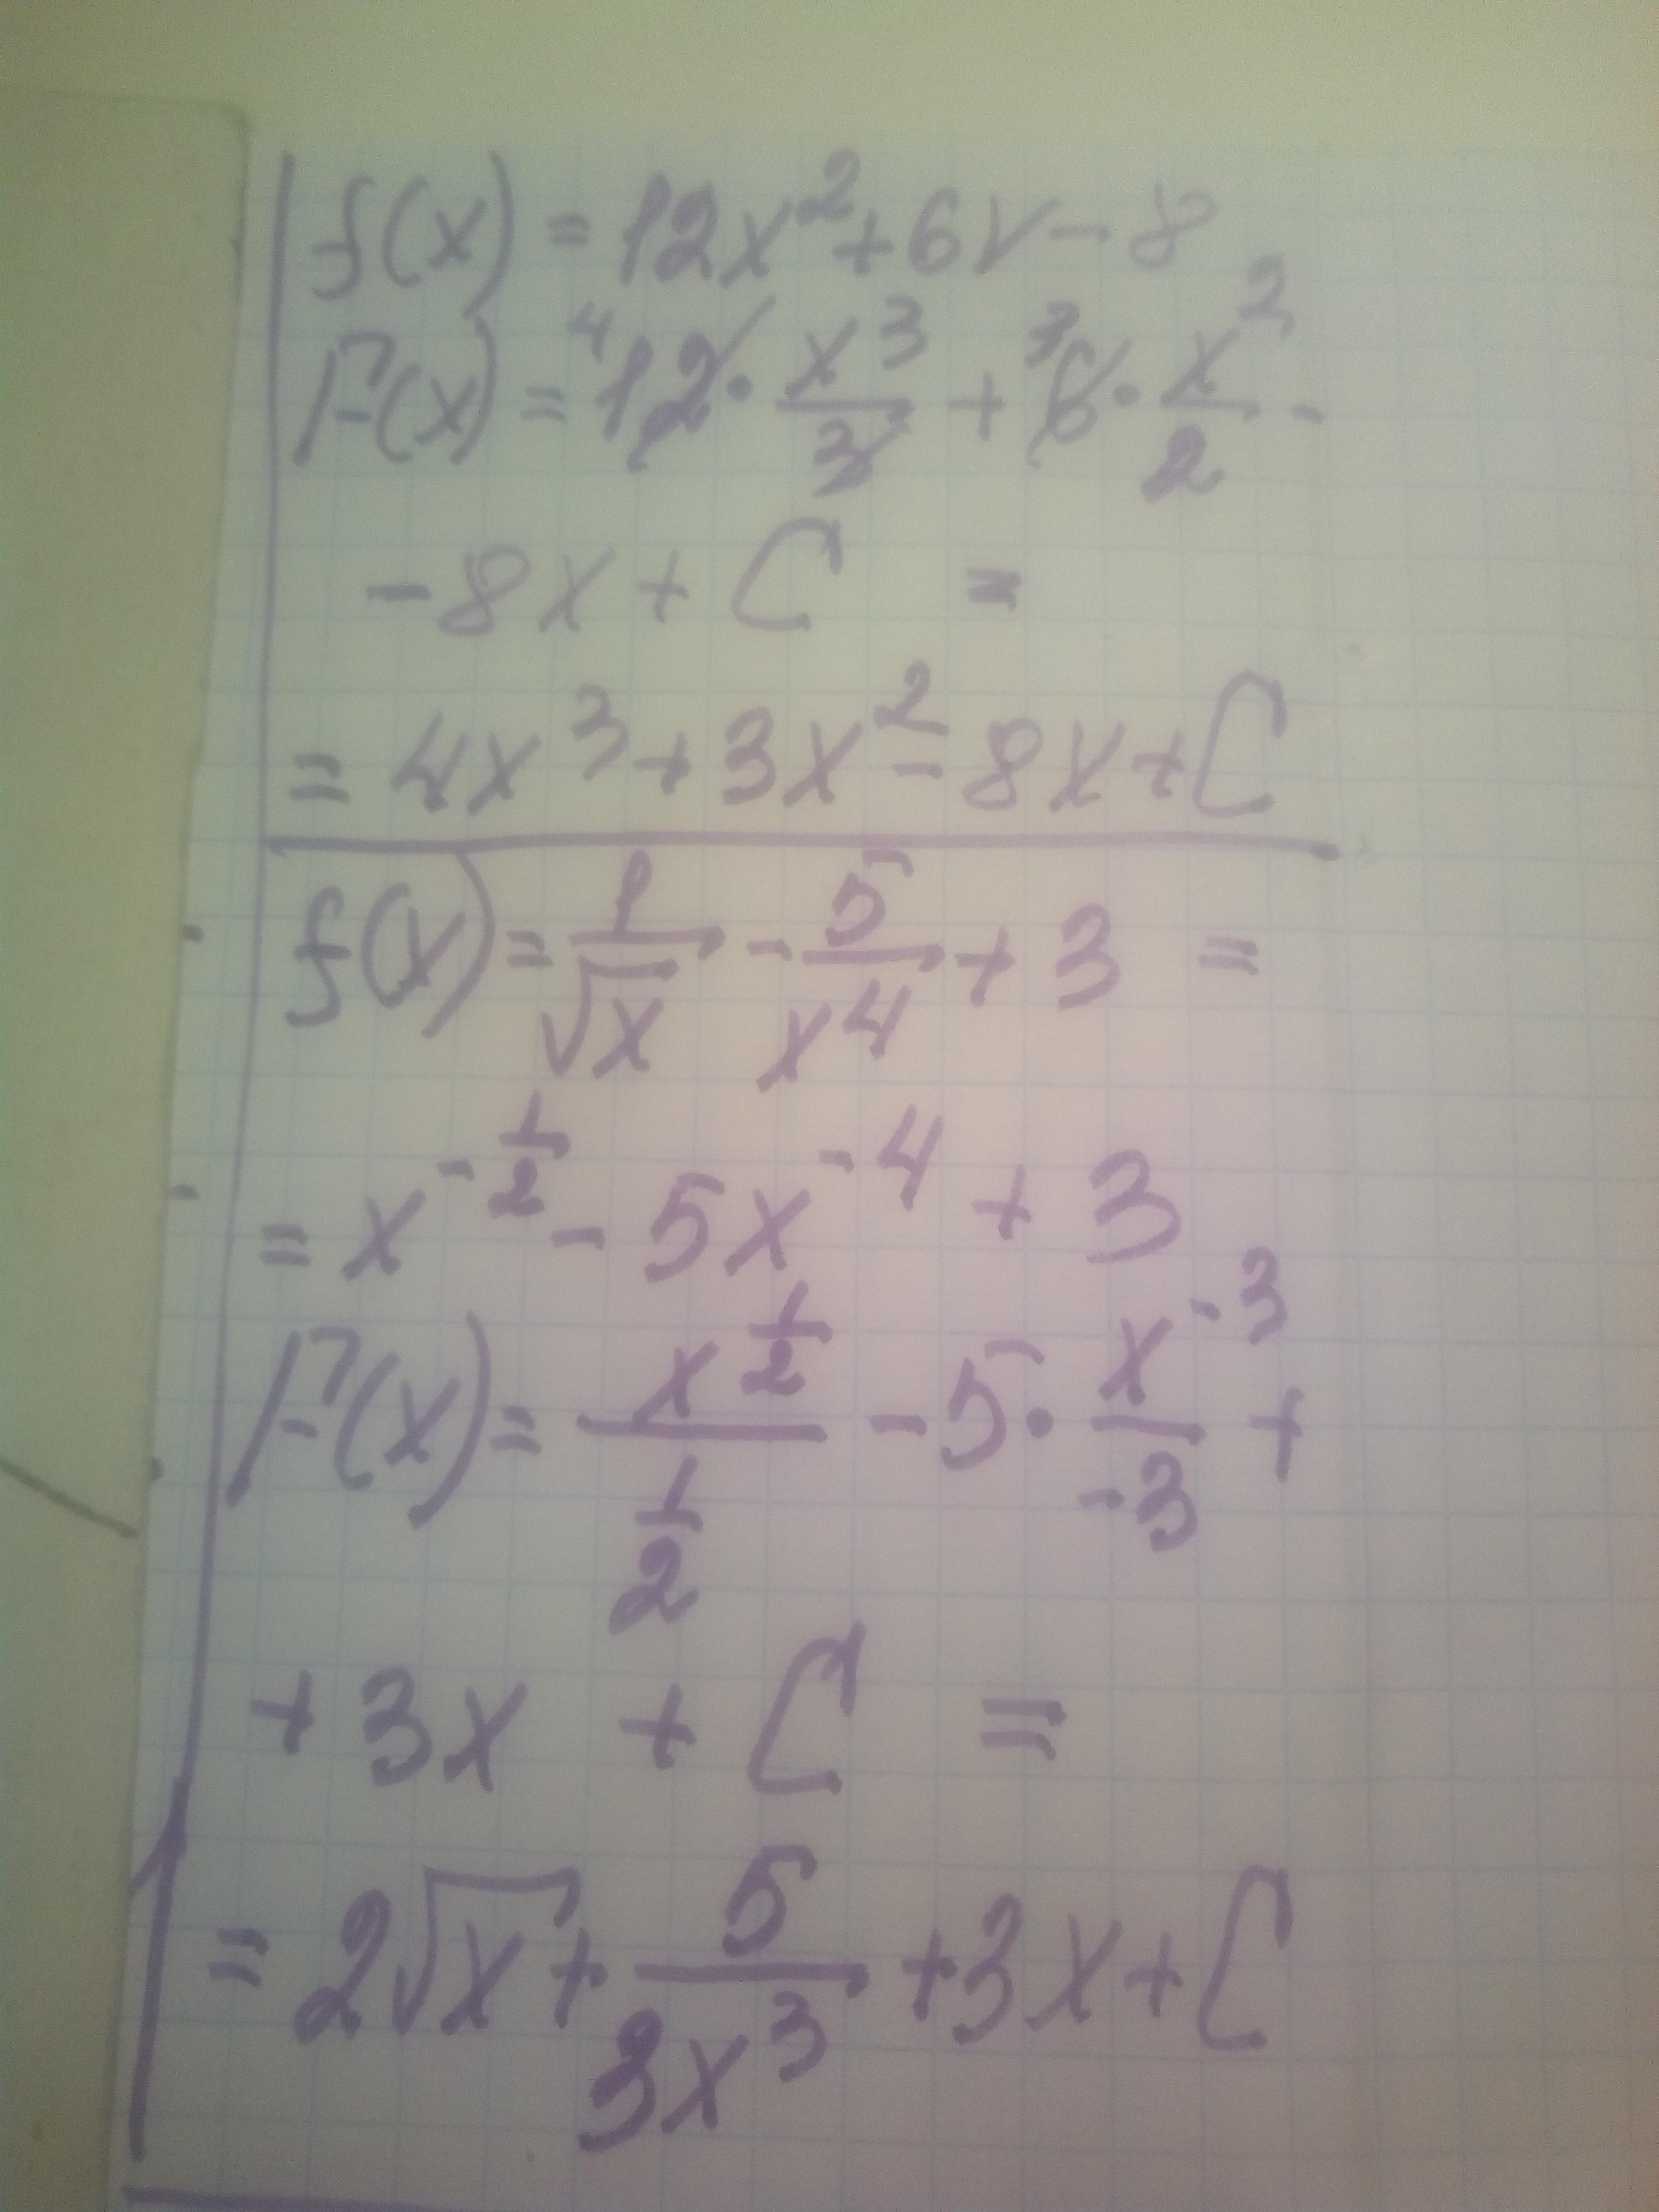 f(x) = 12x² + 6x - 8
F(x) = ⁴12 · x³/3 + ³6 · x²/2 -
- 8x + C =
= 4x³ + 3x² - 8x + C
f(x) = 1/√x - 5/x⁴ + 3 =
= x^(-1/2) - 5x^(-4) + 3
F(x) = x^(1/2)/(1/2) - 5 · x^(-3)/(-3) +
+ 3x + C =
= 2√x + 5/(3x³) + 3x + C